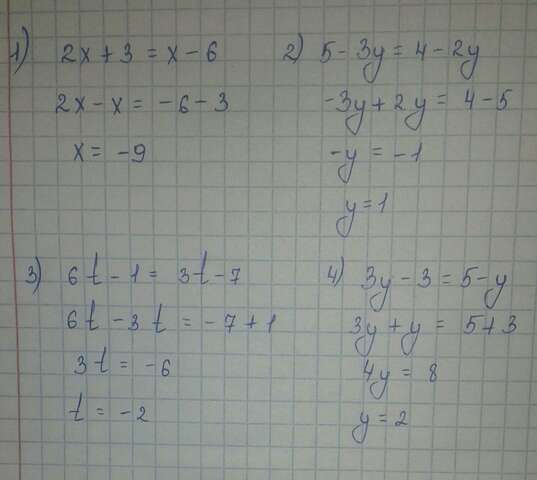 1) 2x + 3 = x - 6
2x - x = -6 - 3
x = -9
2) 5 - 3y = 4 - 2y
-3y + 2y = 4 - 5
-y = -1
y = 1
3) 6t - 1 = 3t - 7
6t - 3t = -7 + 1
3t = -6
t = -2
4) 3y - 3 = 5 - y
3y + y = 5 + 3
4y = 8
y = 2